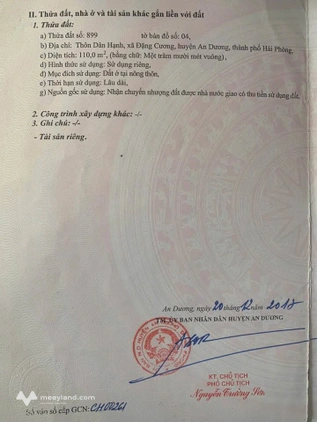 II. Thửa đất, nhà ở và tài sản khác gắn liền với đất
1. Thửa đất:
a) Thửa đất số: 899 tờ bản đồ số: 04,
b) Địa chỉ: Thôn Dân Hạnh, xã Đặng Cương, huyện An Dương, thành phố Hải Phòng,
c) Diện tích: 110,0 m², (bằng chữ: Một trăm mười mét vuông),
d) Hình thức sử dụng: Sử dụng riêng,
đ) Mục đích sử dụng: Đất ở tại nông thôn,
e) Thời hạn sử dụng: Lâu dài,
g) Nguồn gốc sử dụng: Nhận chuyển nhượng đất được nhà nước giao có thu tiền sử dụng đất.
2. Công trình xây dựng khác: -/-
3. Ghi chú: -/-
- Tài sản riêng.
An Dương, ngày 20 tháng 12 năm 2017
TM. ỦY BAN NHÂN DÂN HUYỆN AN DƯƠNG
KT. CHỦ TỊCH
PHÓ CHỦ TỊCH
Nguyễn Trường Sơn
meeyland.com
Số vào sổ cấp GCN: CH00261